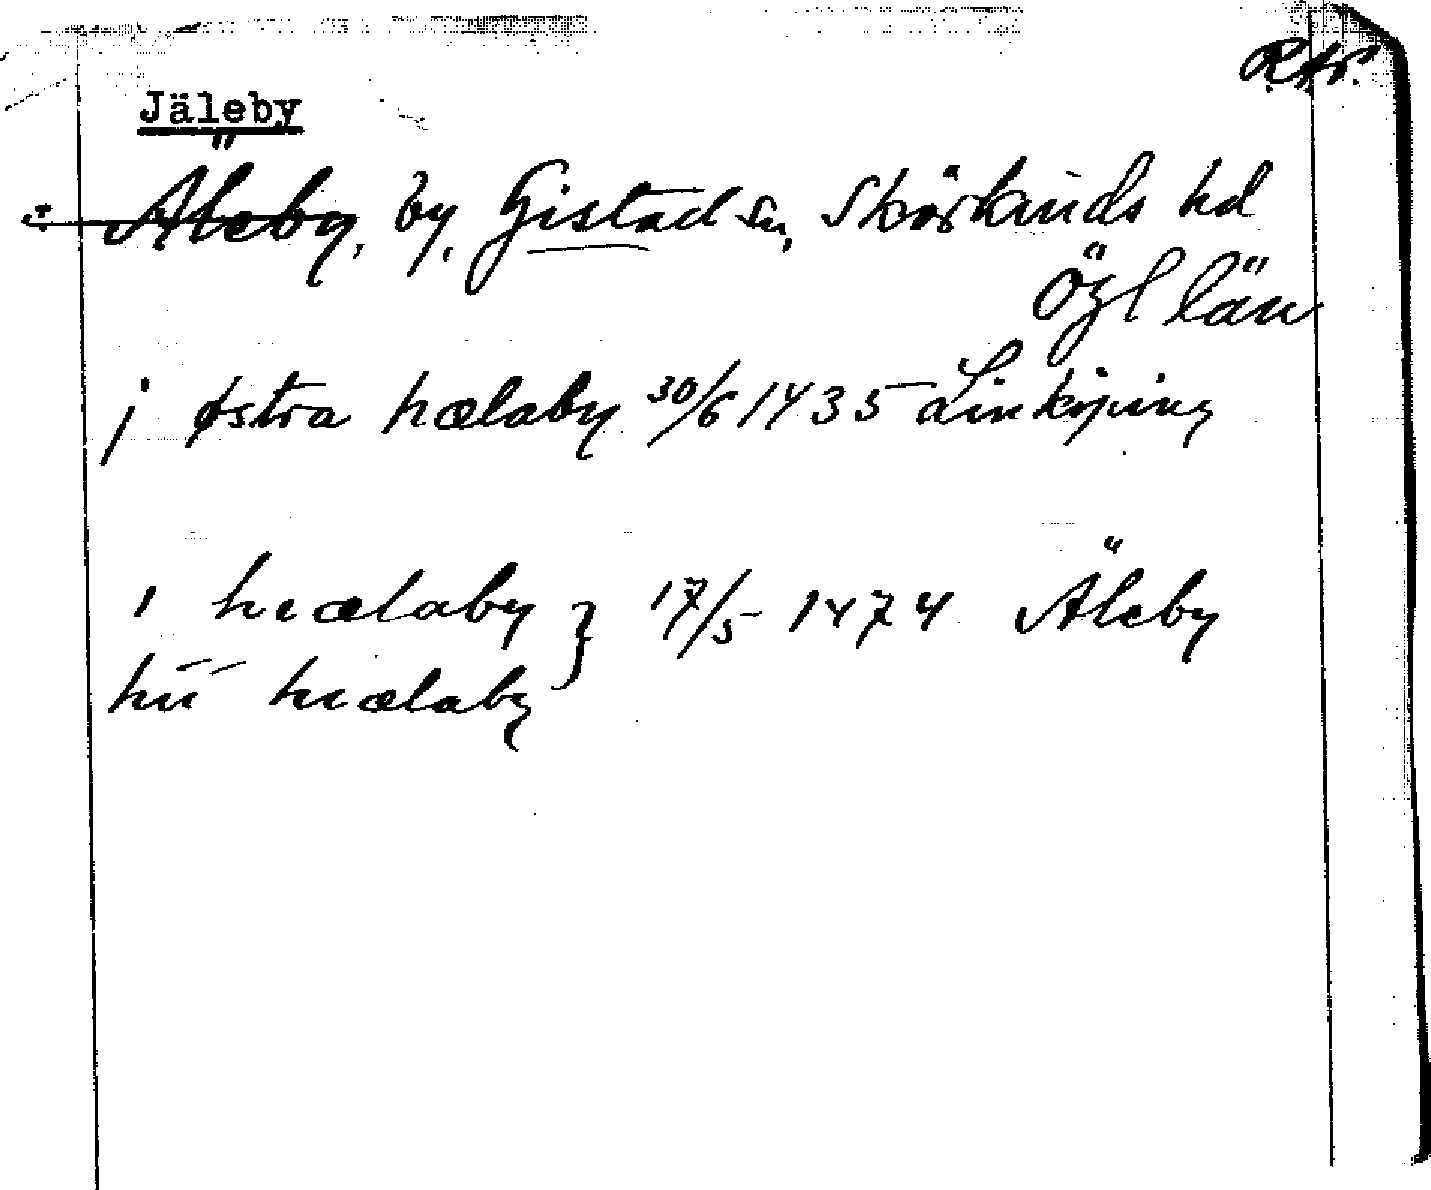 R.A.
Jäleby
Äleby, by, Gistad sn, Skärkinds hd
Ögl län
j østra hælaby 30/6 1435 Linköping
i hiælaby } 17/5 1474 Äleby
hiælaby